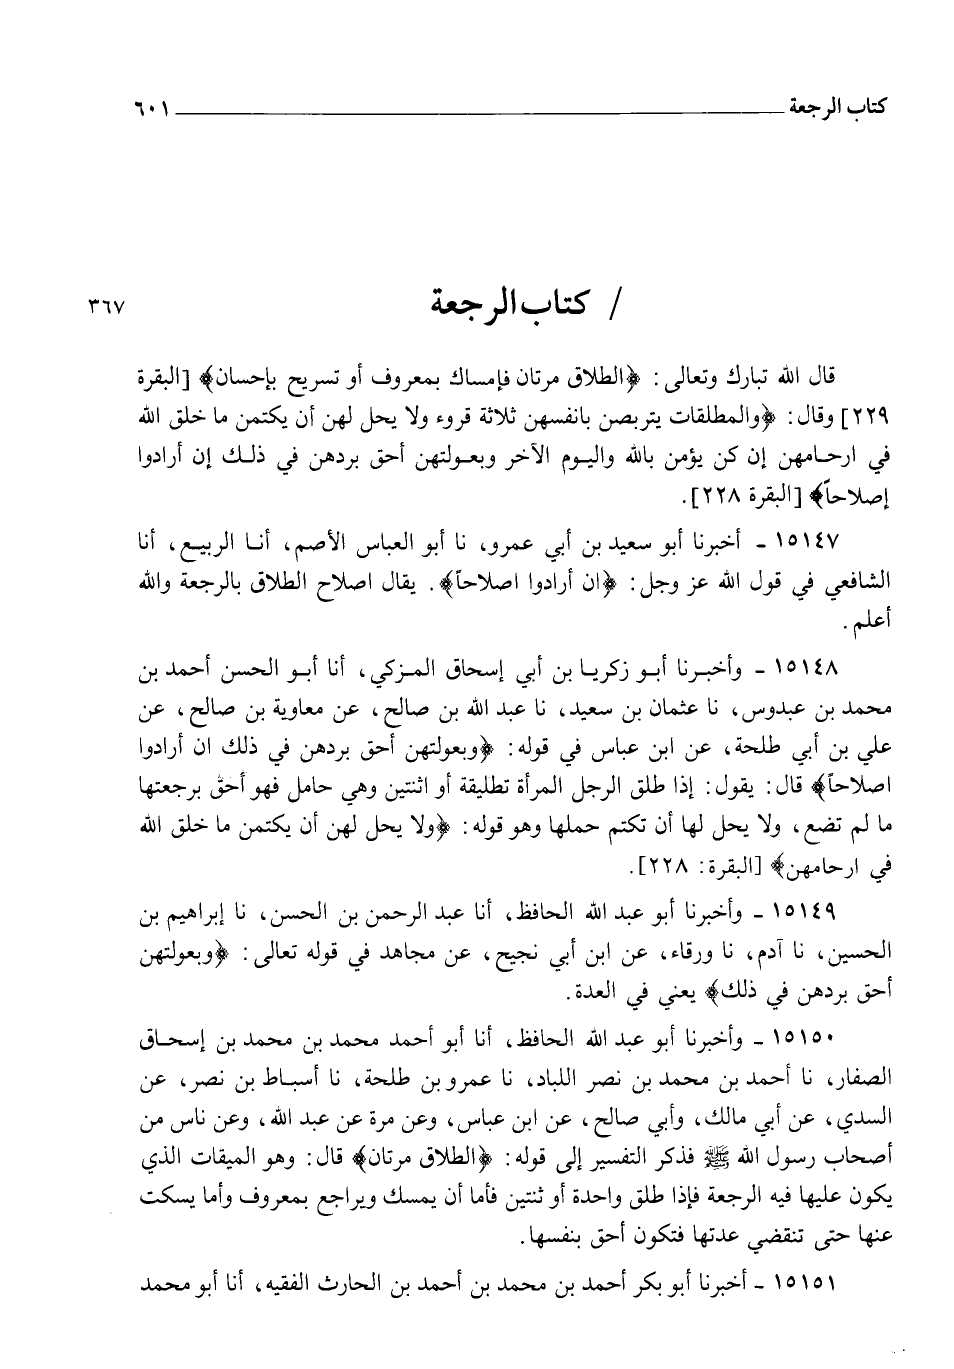 كتاب الرجعة ٦٠١
/ كتاب الرجعة ٣٦٧
قال الله تبارك وتعالى: ﴿الطلاق مرتان فإمساك بمعروف أو تسريح بإحسان﴾ [البقرة
٢٢٩] وقال: ﴿والمطلقات يتربصن بانفسهن ثلاثة قروء ولا يحل لهن أن يكتمن ما خلق الله
في ارحامهن إن كن يؤمن بالله واليوم الآخر وبعولتهن أحق بردهن في ذلك إن أرادوا
إصلاحاً﴾ [البقرة ٢٢٨].
١٥١٤٧ - أخبرنا أبو سعيد بن أبي عمرو، نا أبو العباس الأصم، أنا الربيع، أنا
الشافعي في قول الله عز وجل: ﴿ان أرادوا اصلاحاً﴾. يقال اصلاح الطلاق بالرجعة والله
أعلم.
١٥١٤٨ - وأخبرنا أبو زكريا بن أبي إسحاق المزكي، أنا أبو الحسن أحمد بن
محمد بن عبدوس، نا عثمان بن سعيد، نا عبد الله بن صالح، عن معاوية بن صالح، عن
علي بن أبي طلحة، عن ابن عباس في قوله: ﴿وبعولتهن أحق بردهن في ذلك ان أرادوا
اصلاحاً﴾ قال: يقول: إذا طلق الرجل المرأة تطليقة أو اثنتين وهي حامل فهو أحق برجعتها
ما لم تضع، ولا يحل لها أن تكتم حملها وهو قوله: ﴿ولا يحل لهن أن يكتمن ما خلق الله
في ارحامهن﴾ [البقرة: ٢٢٨].
١٥١٤٩ - وأخبرنا أبو عبد الله الحافظ، أنا عبد الرحمن بن الحسن، نا إبراهيم بن
الحسين، نا آدم، نا ورقاء، عن ابن أبي نجيح، عن مجاهد في قوله تعالى: ﴿وبعولتهن
أحق بردهن في ذلك﴾ يعني في العدة.
١٥١٥٠ - وأخبرنا أبو عبد الله الحافظ، أنا أبو أحمد محمد بن محمد بن إسحاق
الصفار، نا أحمد بن محمد بن نصر اللباد، نا عمرو بن طلحة، نا أسباط بن نصر، عن
السدي، عن أبي مالك، وأبي صالح، عن ابن عباس، وعن مرة عن عبد الله، وعن ناس من
أصحاب رسول الله ﷺ فذكر التفسير إلى قوله: ﴿الطلاق مرتان﴾ قال: وهو الميقات الذي
يكون عليها فيه الرجعة فإذا طلق واحدة أو ثنتين فأما أن يمسك ويراجع بمعروف وأما يسكت
عنها حتى تنقضي عدتها فتكون أحق بنفسها.
١٥١٥١ - أخبرنا أبو بكر أحمد بن محمد بن أحمد بن الحارث الفقيه، أنا أبو محمد